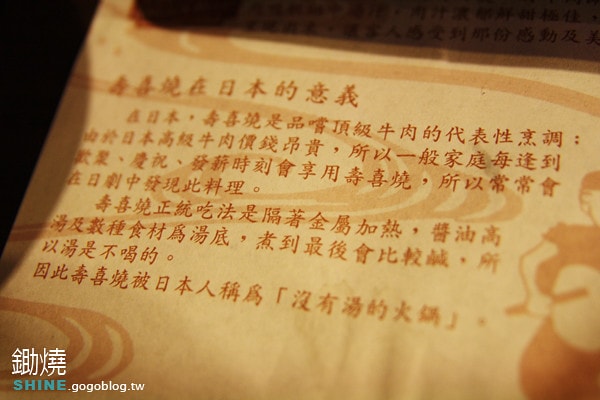 肉汁濃郁鮮甜極佳，
讓客人感受到那份感動及美
壽喜燒在日本的意義
在日本，壽喜燒是品嚐頂級牛肉的代表性烹調；
由於日本高級牛肉價錢昂貴，所以一般家庭每逢到
歡聚、慶祝、發薪時刻會享用壽喜燒，所以常常會
在日劇中發現此料理。
壽喜燒正統吃法是隔著金屬加熱，醬油高
湯及數種食材為湯底，煮到最後會比較鹹，所
以湯是不喝的。
因此壽喜燒被日本人稱為「沒有湯的火鍋」。
鋤燒
SHINE.gogoblog.tw